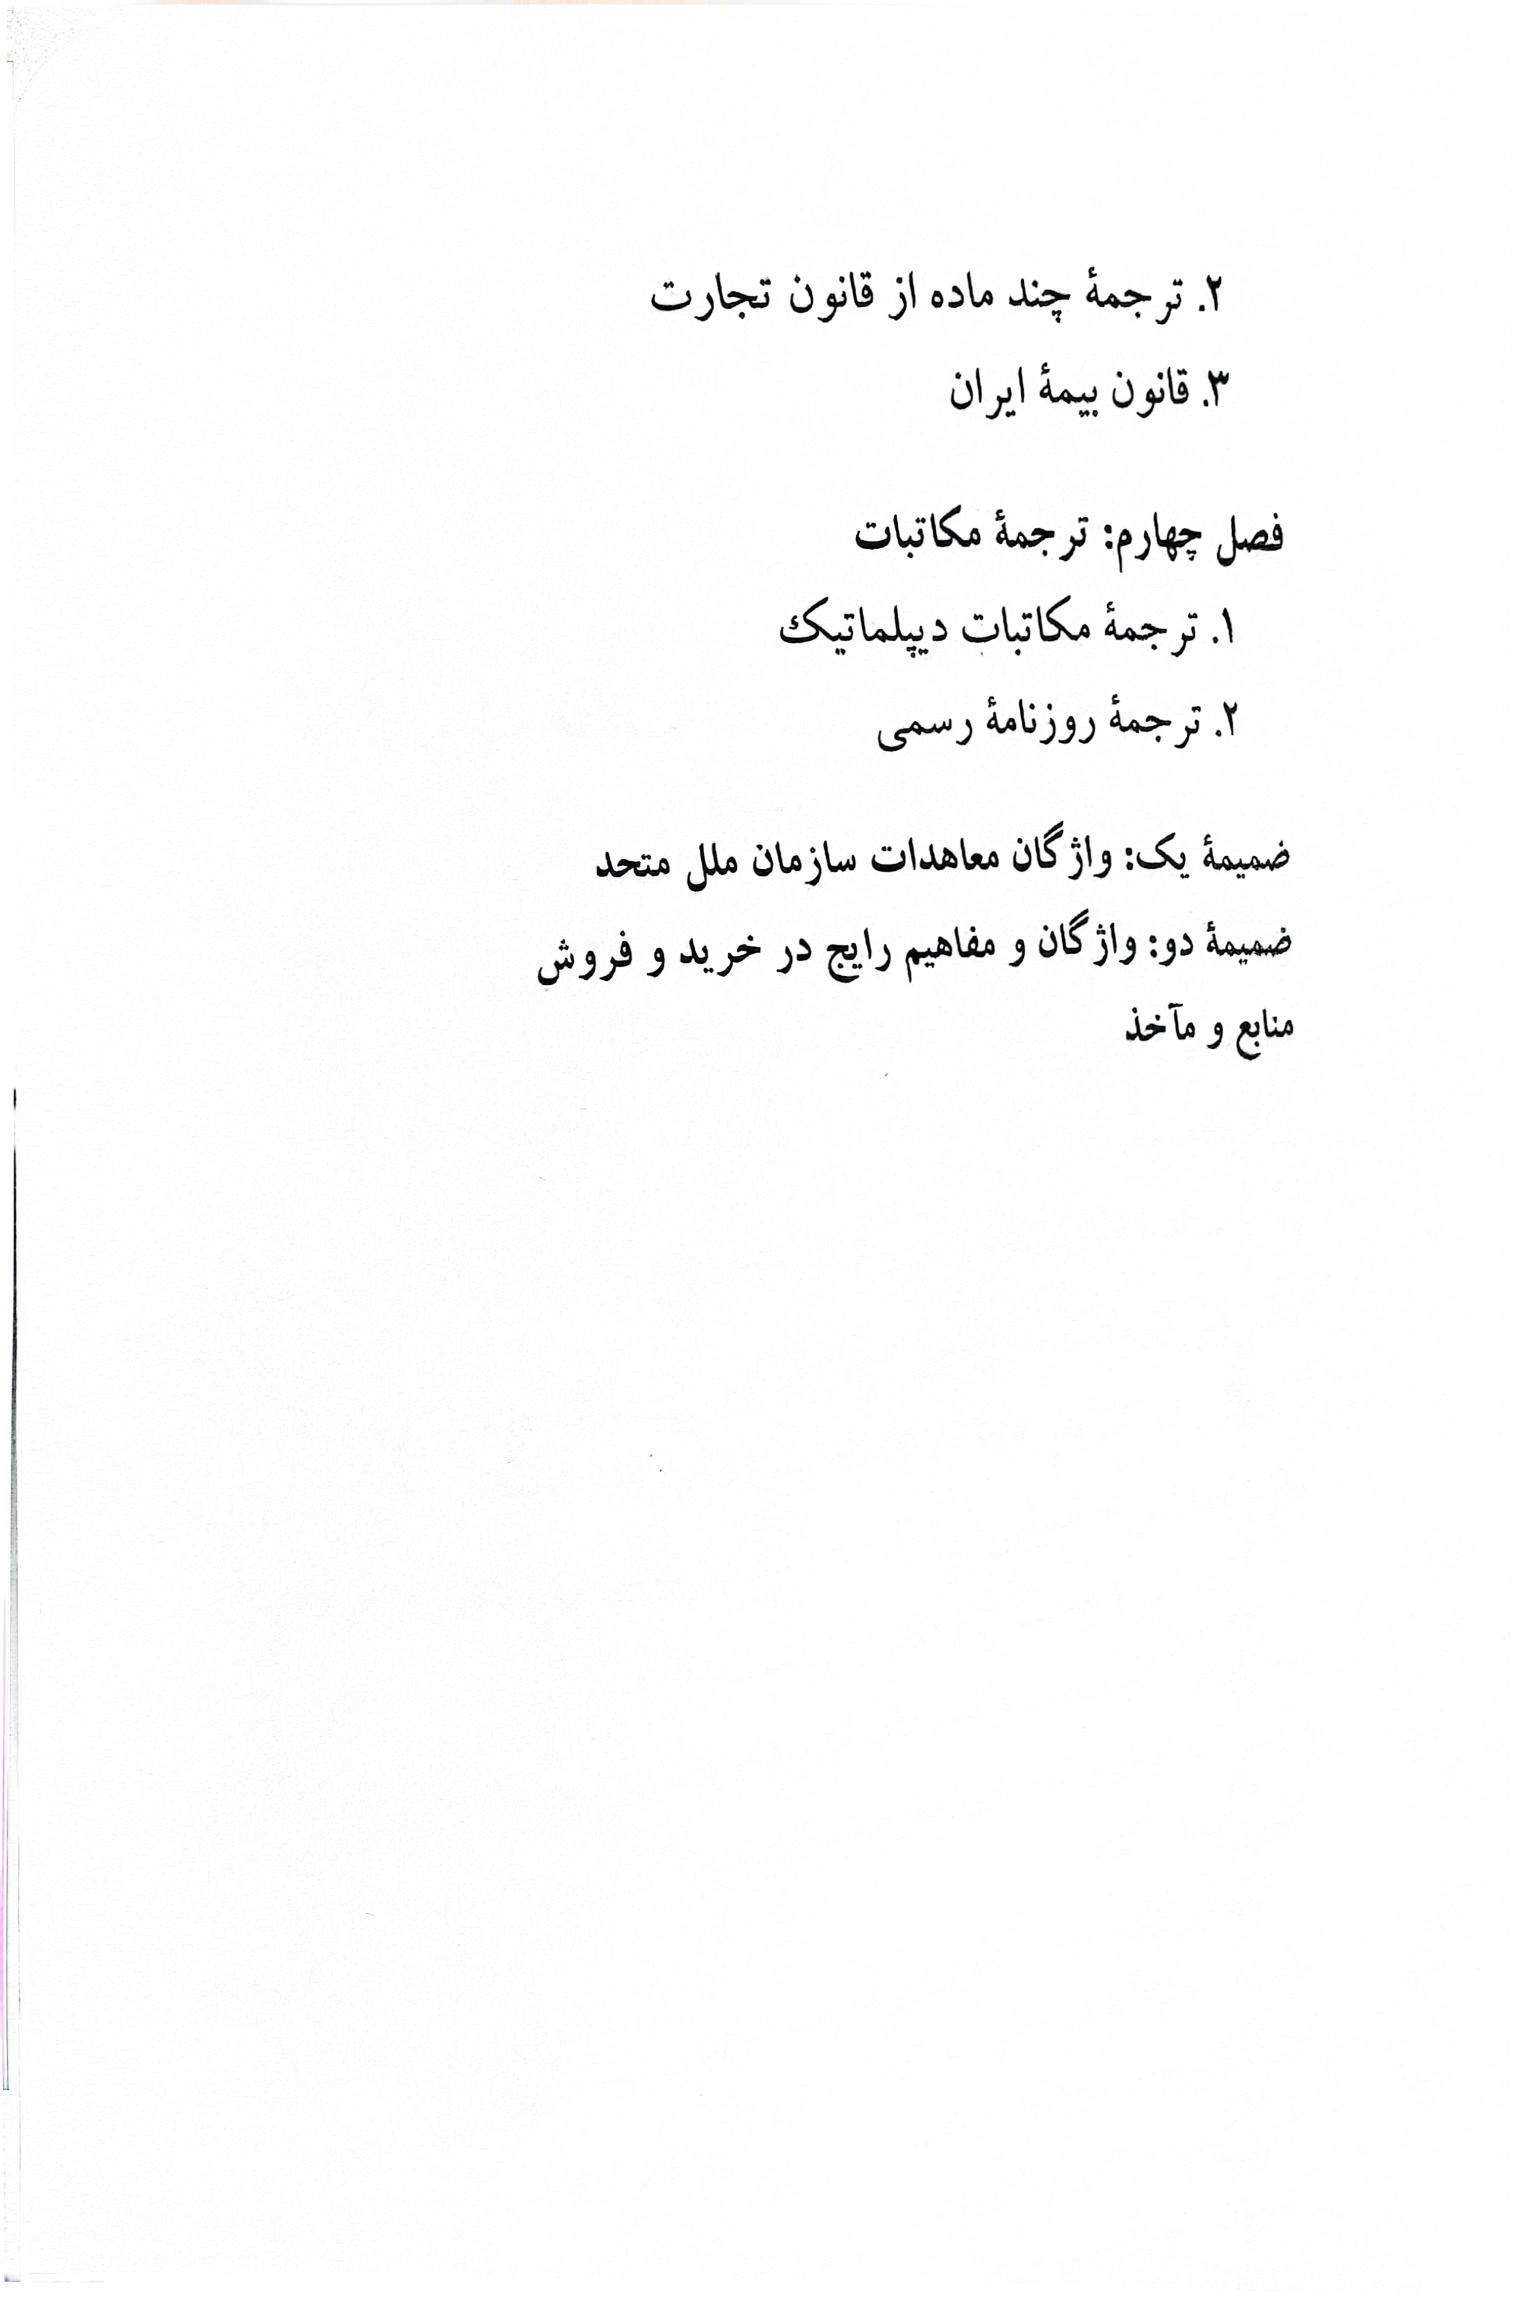 ۲. ترجمهٔ چند ماده از قانون تجارت
۳. قانون بیمهٔ ایران
فصل چهارم: ترجمهٔ مکاتبات
۱. ترجمهٔ مکاتبات دیپلماتیک
۲. ترجمهٔ روزنامهٔ رسمی
ضمیمهٔ یک: واژگان معاهدات سازمان ملل متحد
ضمیمهٔ دو: واژگان و مفاهیم رایج در خرید و فروش
منابع و مآخذ